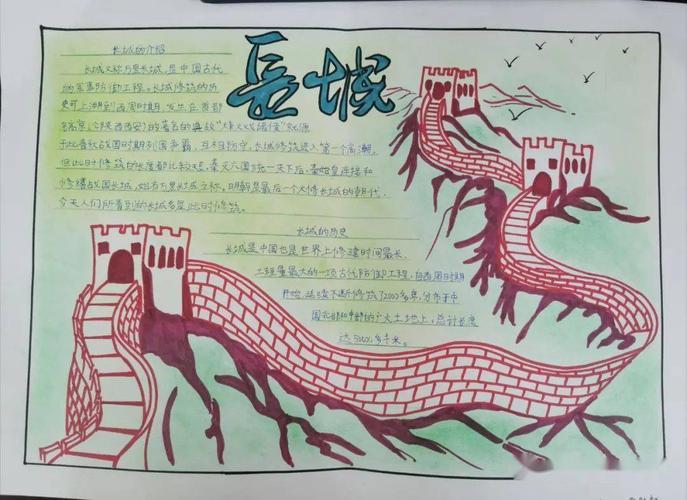 長城
长城的介绍
长城又称万里长城,是中国古代
的军事防御工程。长城修筑的历
史可上溯到西周时期,发生在首都
镐京(今陕西西安)的著名的典故"烽火戏诸侯"就源
于此春秋战国时期列国争霸,互相防守,长城修筑进入第一个高潮,
但此时修筑的长度都比较短,秦灭六国统一天下后,秦始皇连接和
修缮战国长城,始有万里长城之称,明朝是最后一个大修长城的朝代,
今天人们所看到的长城多是此时修筑。
长城的历史
长城是中国也是世界上修建时间最长,
工程量最大的一项古代防御工程,自西周时期
开始,延续不断修筑了2000多年,分布于中
国北部和中部的广大土地上,总计长度
达50000多千米。